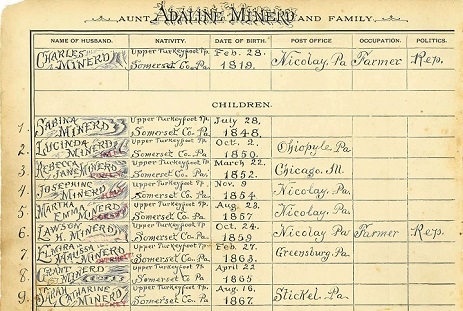 AUNT ADALINE MINERD AND FAMILY.
NAME OF HUSBAND. NATIVITY. DATE OF BIRTH. POST OFFICE OCCUPATION. POLITICS.
CHARLES MINERD Upper Turkeyfoot Tp. Somerset Co. Pa Feb. 28. 1819. Nicolay, Pa Farmer Rep.
CHILDREN.
1. SABINA MINERD Upper Turkeyfoot Tp. Somerset Co. Pa July 28, 1848.
2. LUCINDA MINERD Upper Turkeyfoot Tp. Somerset Co. Pa Oct. 2. 1850. Ohiopyle, Pa
3. REBECCA JANE MINERD Upper Turkeyfoot Tp. Somerset Co. Pa. March 22. 1852. Chicago, Ill
4. JOSEPHINE MINERD Upper Turkeyfoot Tp. Somerset Co. Pa Nov. 9 1854. Nicolay, Pa.
5. MARTHA EMMA MINERD Upper Turkeyfoot Tp. Somerset Co. Pa Aug. 23. 1857 Nicolay, Pa.
6. LAWSON H. MINERD Upper Turkeyfoot Tp. Somerset Co. Pa Oct. 24. 1859 Nicolay Pa Farmer Rep.
7 MINERD Upper Turkeyfoot Tp. Somerset Co. Pa Feb. 27. 1863. Greensburg, Pa.
8. GRANT MINERD Upper Turkeyfoot Tp. Somerset Co. Pa April 22 1865
9. CATHARINE MINERD Upper Turkeyfoot Tp. Somerset Co. Pa Aug. 16. 1867. Stickel, Pa.